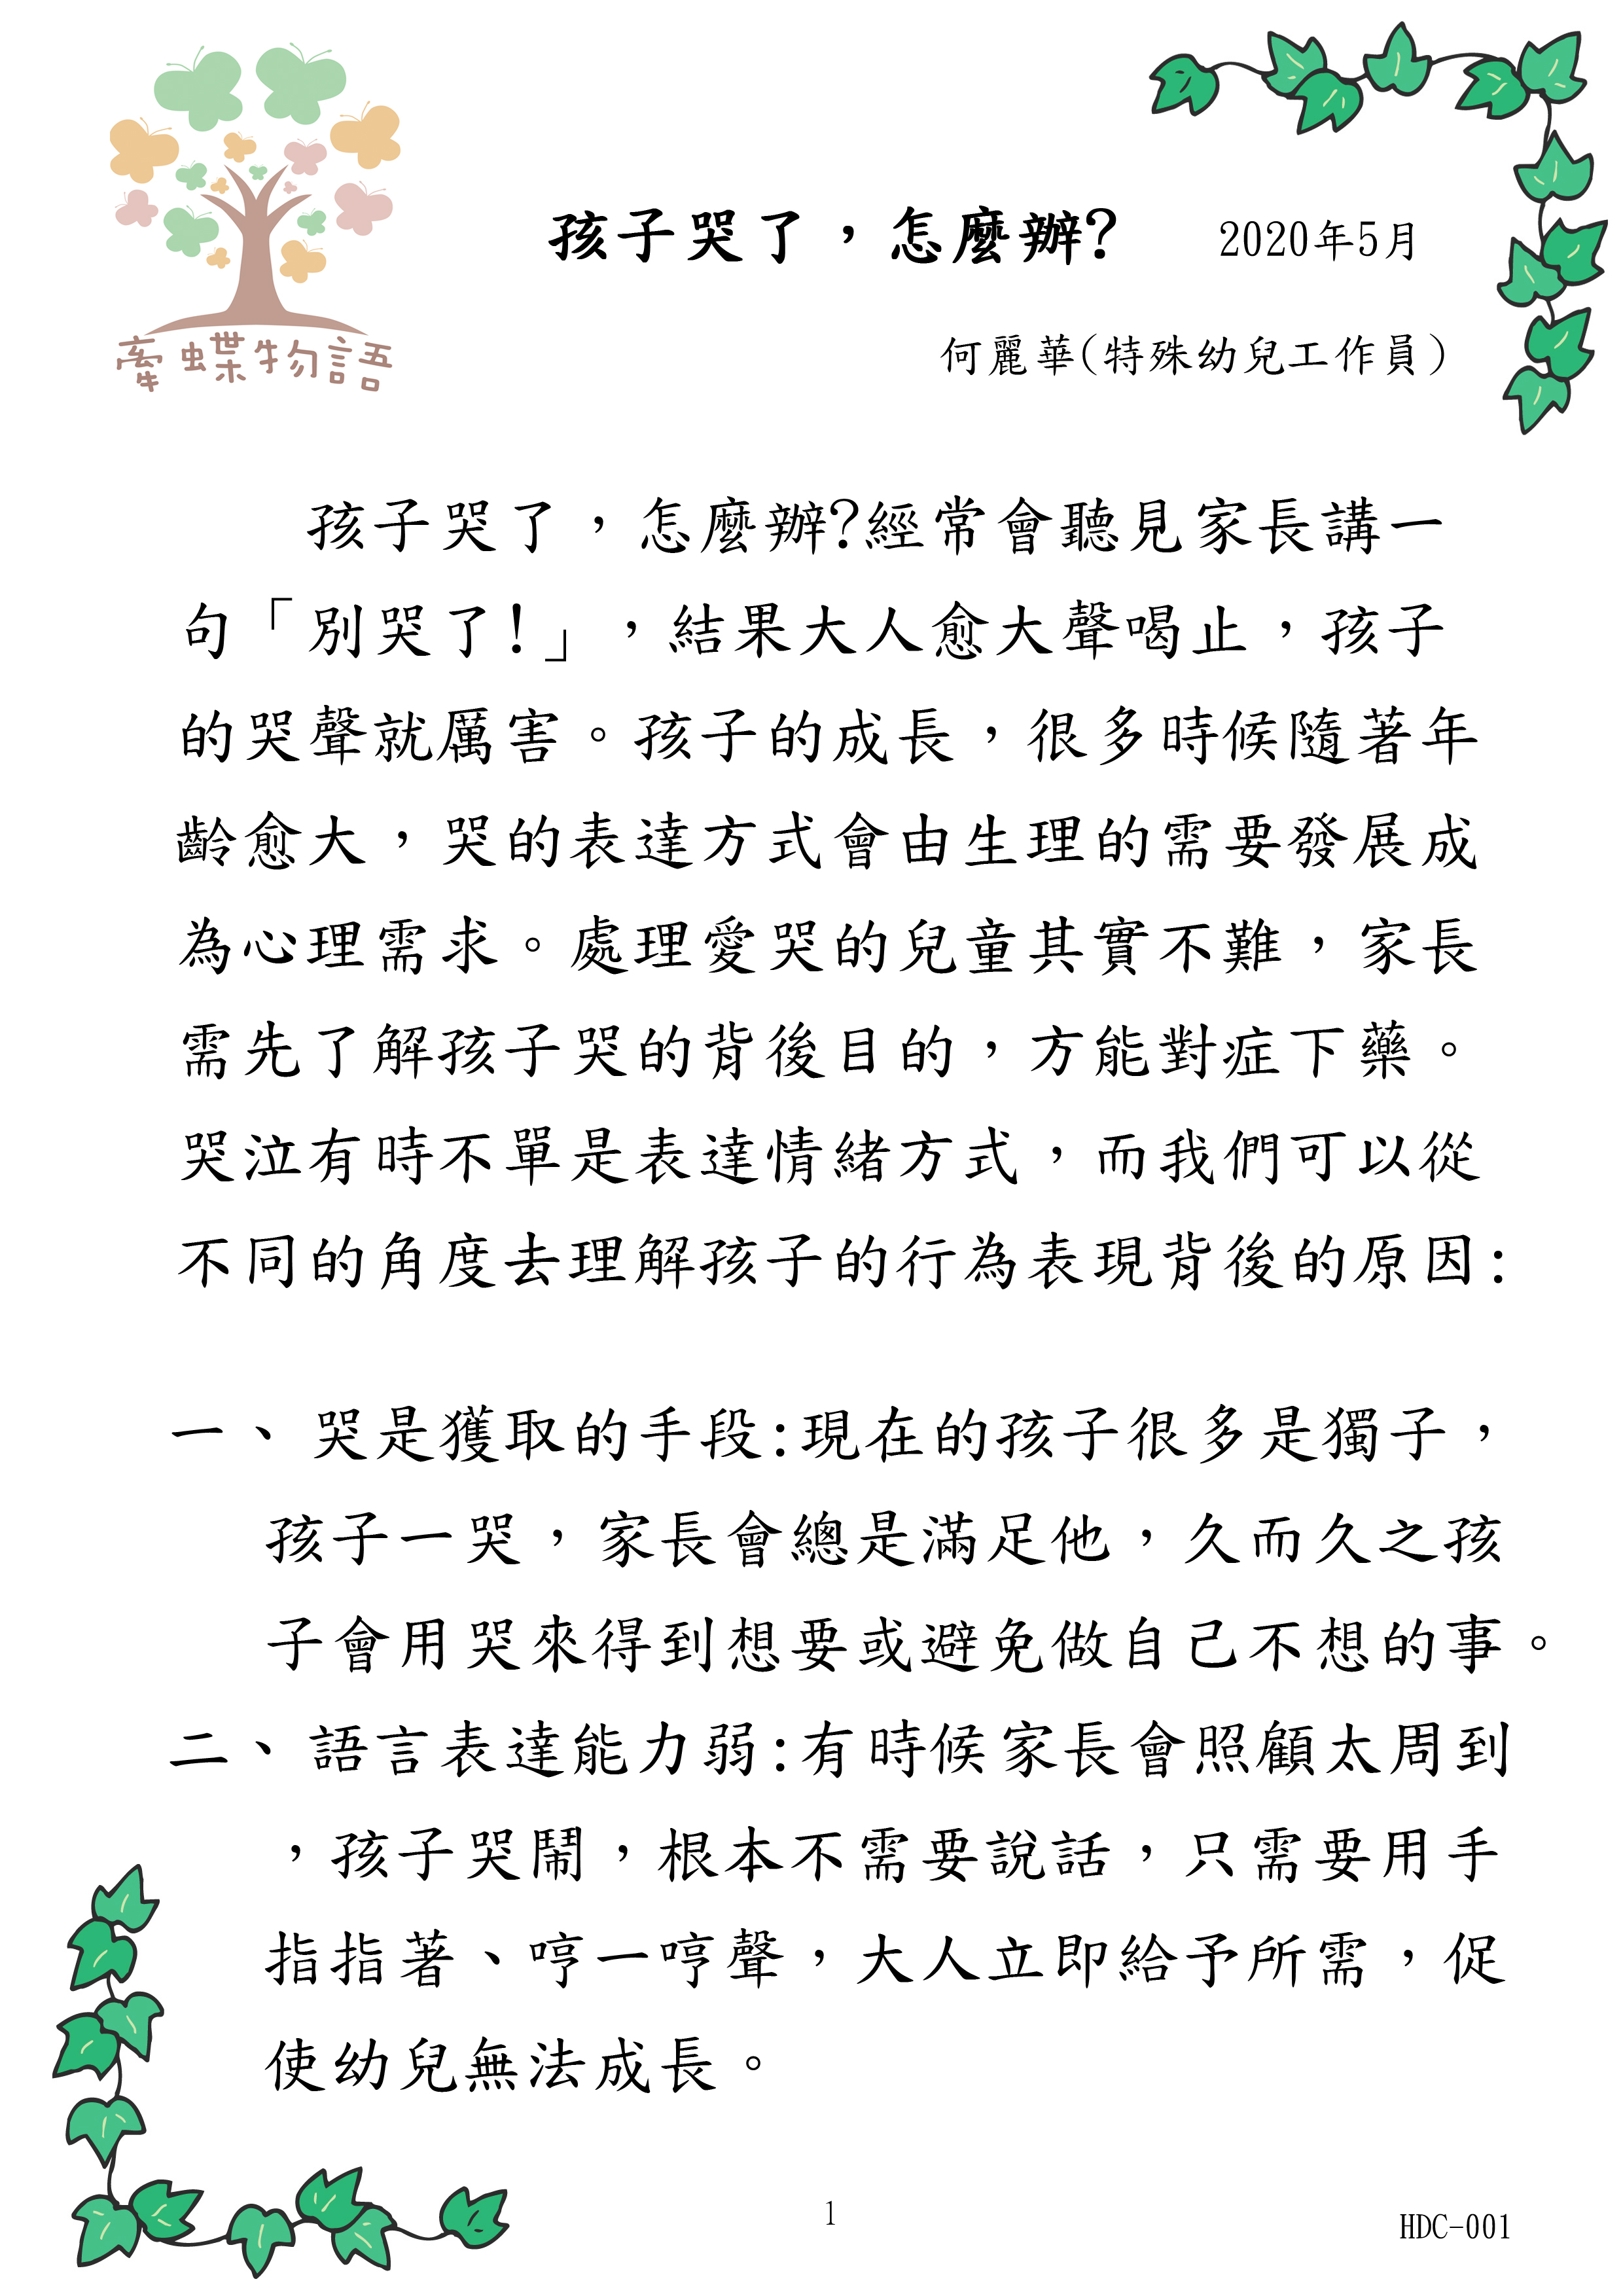 孩子哭了，怎麼辦? 2020年5月
牽蝶物語
何麗華(特殊幼兒工作員)
孩子哭了，怎麼辦?經常會聽見家長講一
句「別哭了!」，結果大人愈大聲喝止，孩子
的哭聲就厲害。孩子的成長，很多時候隨著年
齡愈大，哭的表達方式會由生理的需要發展成
為心理需求。處理愛哭的兒童其實不難，家長
需先了解孩子哭的背後目的，方能對症下藥。
哭泣有時不單是表達情緒方式，而我們可以從
不同的角度去理解孩子的行為表現背後的原因:
一、哭是獲取的手段:現在的孩子很多是獨子，
孩子一哭，家長會總是滿足他，久而久之孩
子會用哭來得到想要或避免做自己不想的事。
二、語言表達能力弱:有時候家長會照顧太周到
，孩子哭鬧，根本不需要說話，只需要用手
指指著、哼一哼聲，大人立即給予所需，促
使幼兒無法成長。
1
HDC-001